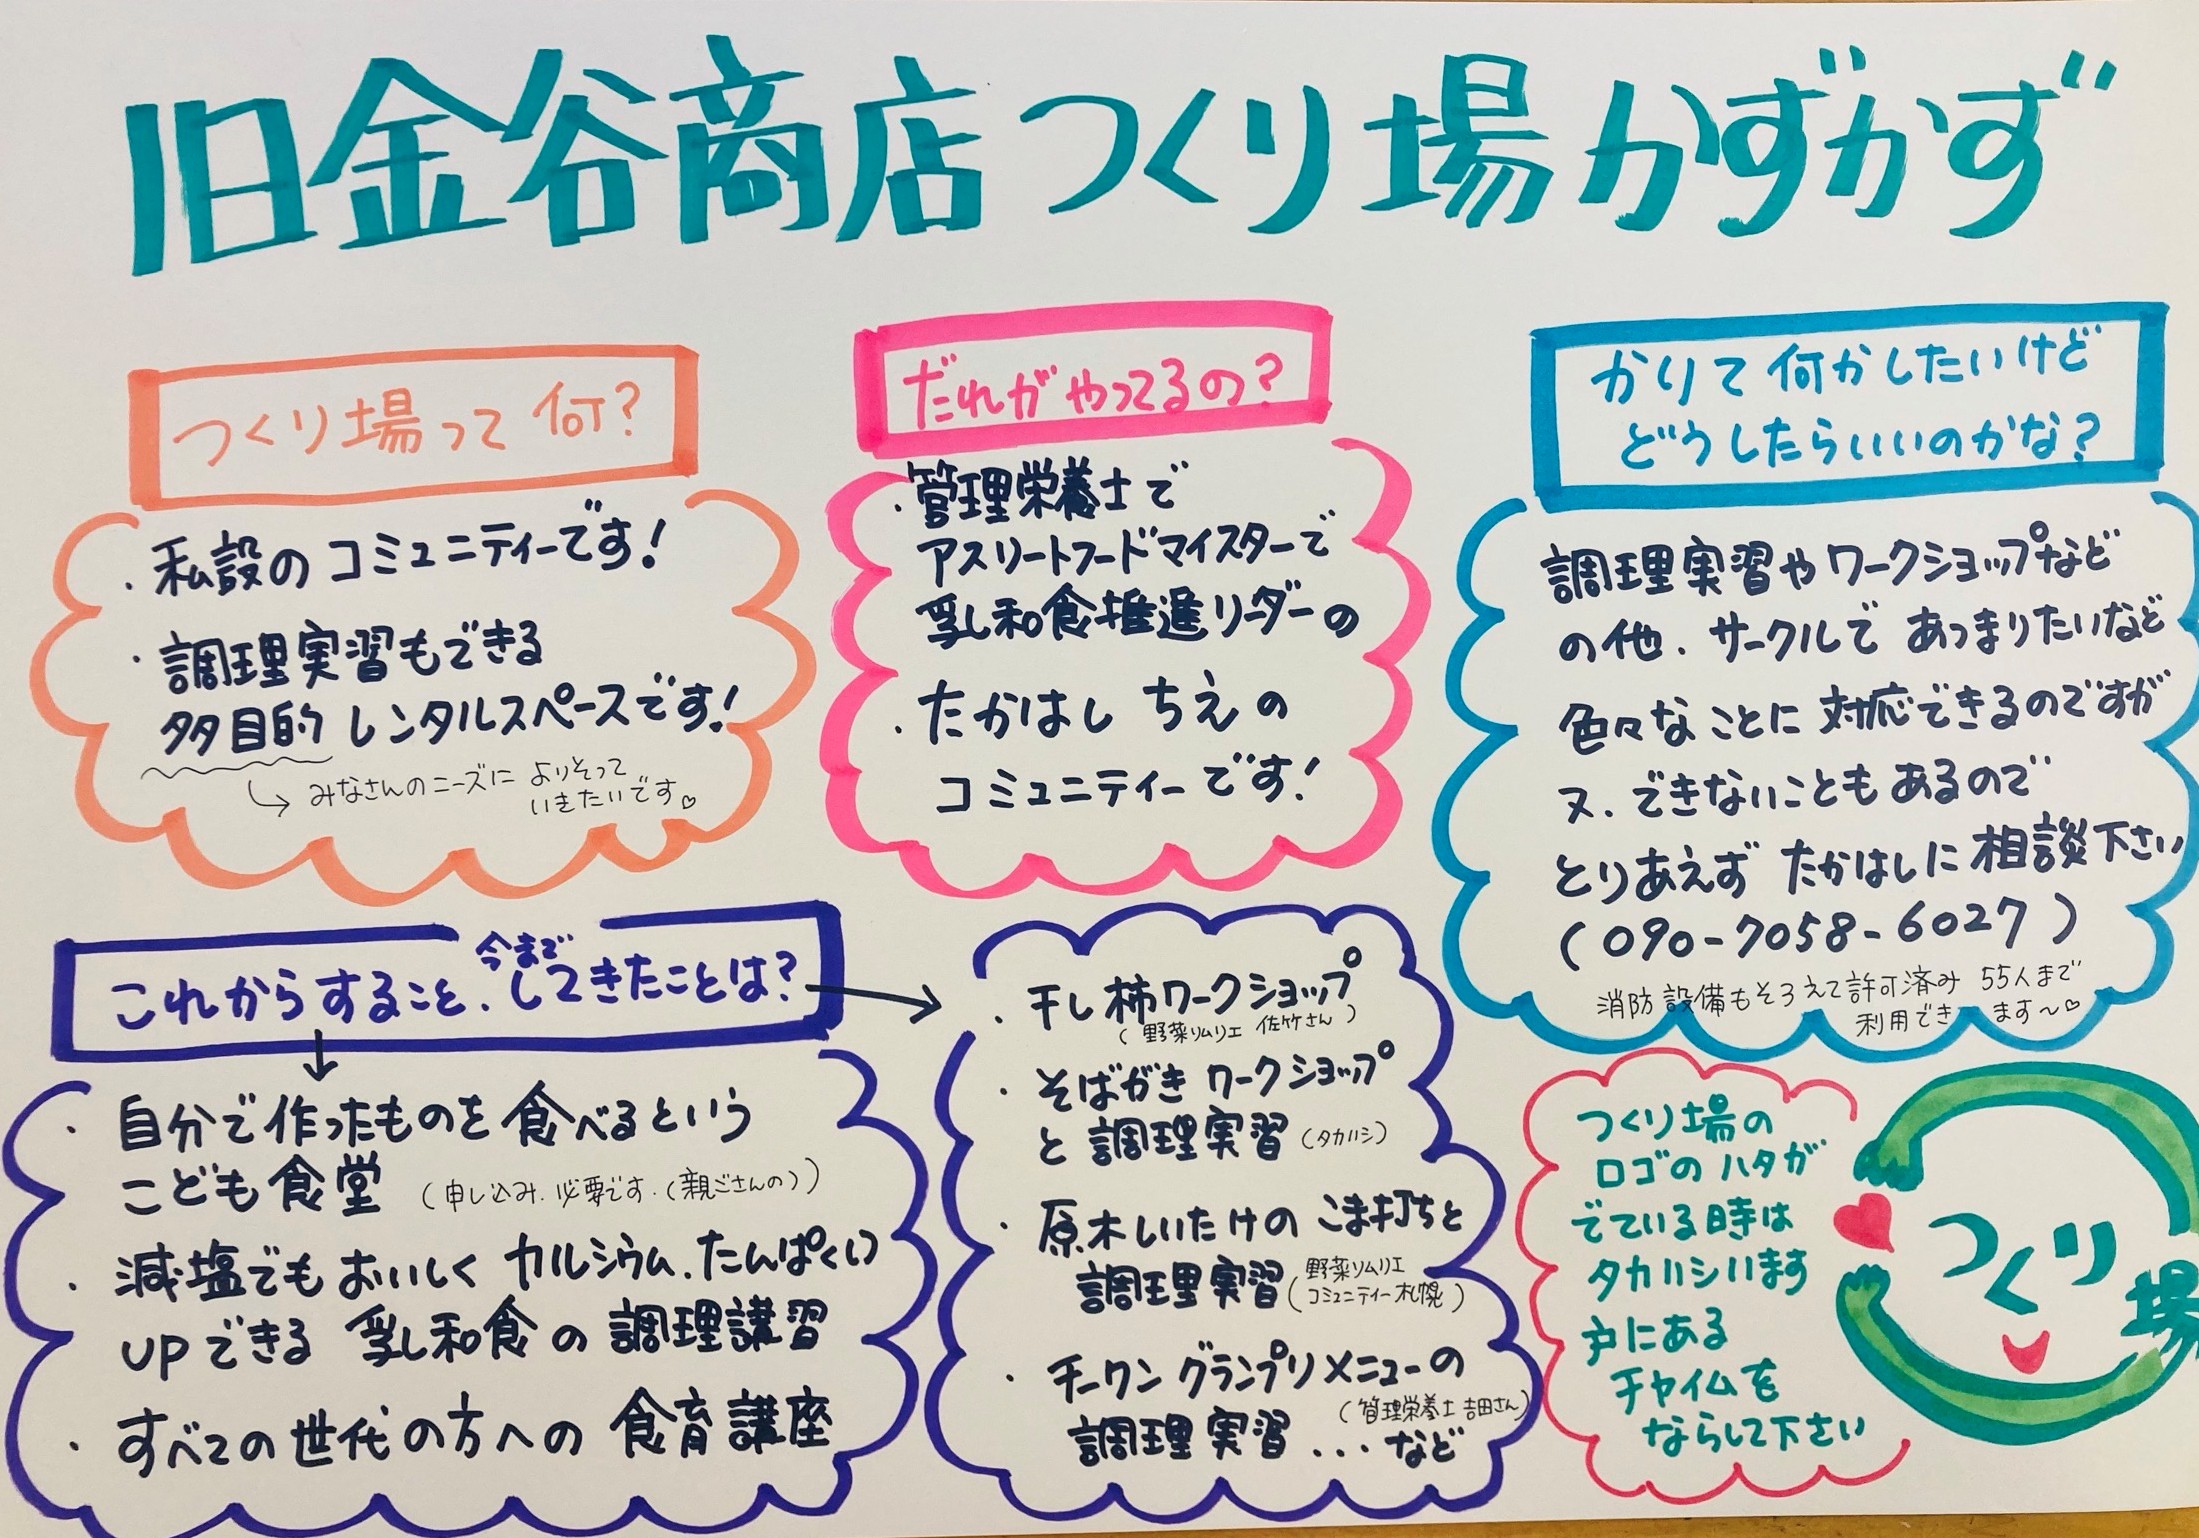 旧金谷商店つくり場かずかず
つくり場って何?
・私設のコミュニティーです!
・調理実習もできる
多目的レンタルスペースです!
→みなさんのニーズによりそって
いきたいです♡
だれがやってるの?
・管理栄養士で
アスリートフードマイスターで
乳和食推進リーダーの
・たかはし ちえの
コミュニティーです!
かりて何かしたいけど
どうしたらいいのかな?
調理実習やワークショップなど
の他、サークルであつまりたいなど
色々なことに対応できるのですが
又、できないこともあるので
とりあえず たかはしに相談下さい
(090-7058-6027)
消防設備もそろえて許可済み 55人まで
利用できます〜♡
これからすること、今までしてきたことは?
・自分で作ったものを食べるという
こども食堂 (申し込み、必要です。(親ごさんの))
・減塩でもおいしくカルシウム、たんぱくしつ
UPできる 乳和食の調理講習
・すべての世代の方への食育講座
・干し柿ワークショップ
(野菜ソムリエ 佐竹さん)
・そばがきワークショップ
と調理実習(タカハシ)
・原木しいたけのこま打ちと
調理実習(野菜ソムリエ
コミュニティー札幌)
・チーワングランプリメニューの
(管理栄養士 吉田さん)
調理実習...など
つくり場の
ロゴのハタが
でている時は
タカハシいます
戸にある
チャイムを
ならして下さい
つくり
場